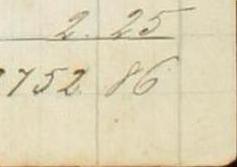 2. 25
752. 86